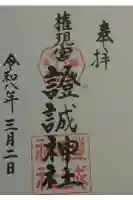 奉拝
権現宮
證誠神社
令和八年三月二日